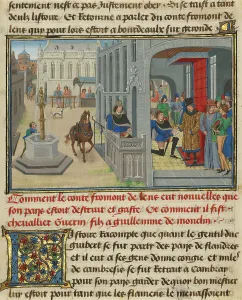 sentement nest ce pas justement ober. Si se taist a tant
de lui listoire. Et retourne a parler du conte fromont de
lens que pour lors estoit a bourdeaulx sur geronde
Comment le conte fromont de lens eut nouuelles que
son pays estoit destruit et gaste. Et comment il fist
cheuallier Guerin filz a guillemme de monclin
Listoire racompte que quant le gentil duc
guibert se fut party des pays de flandres
et il eut a ses gens donne congie et mis
de cambresis se fut retrait a Cambray
pour son pays garder de quoy bon mestier
luy estoit pour tant que les flamens le menassoient